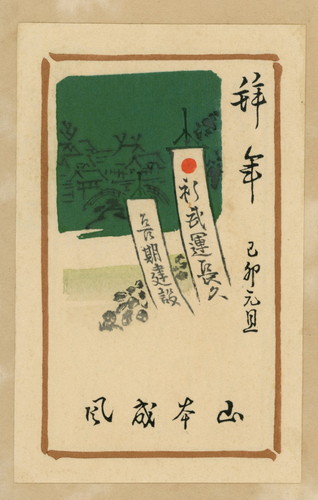 拜年
己卯元旦
祈武運長久
長期建設
山本成風